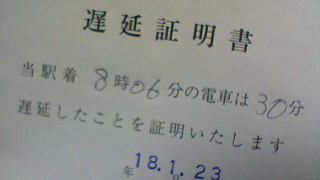 遅延証明書
当駅着 8時06分の電車は30分
遅延したことを証明いたします
年 18.1.23